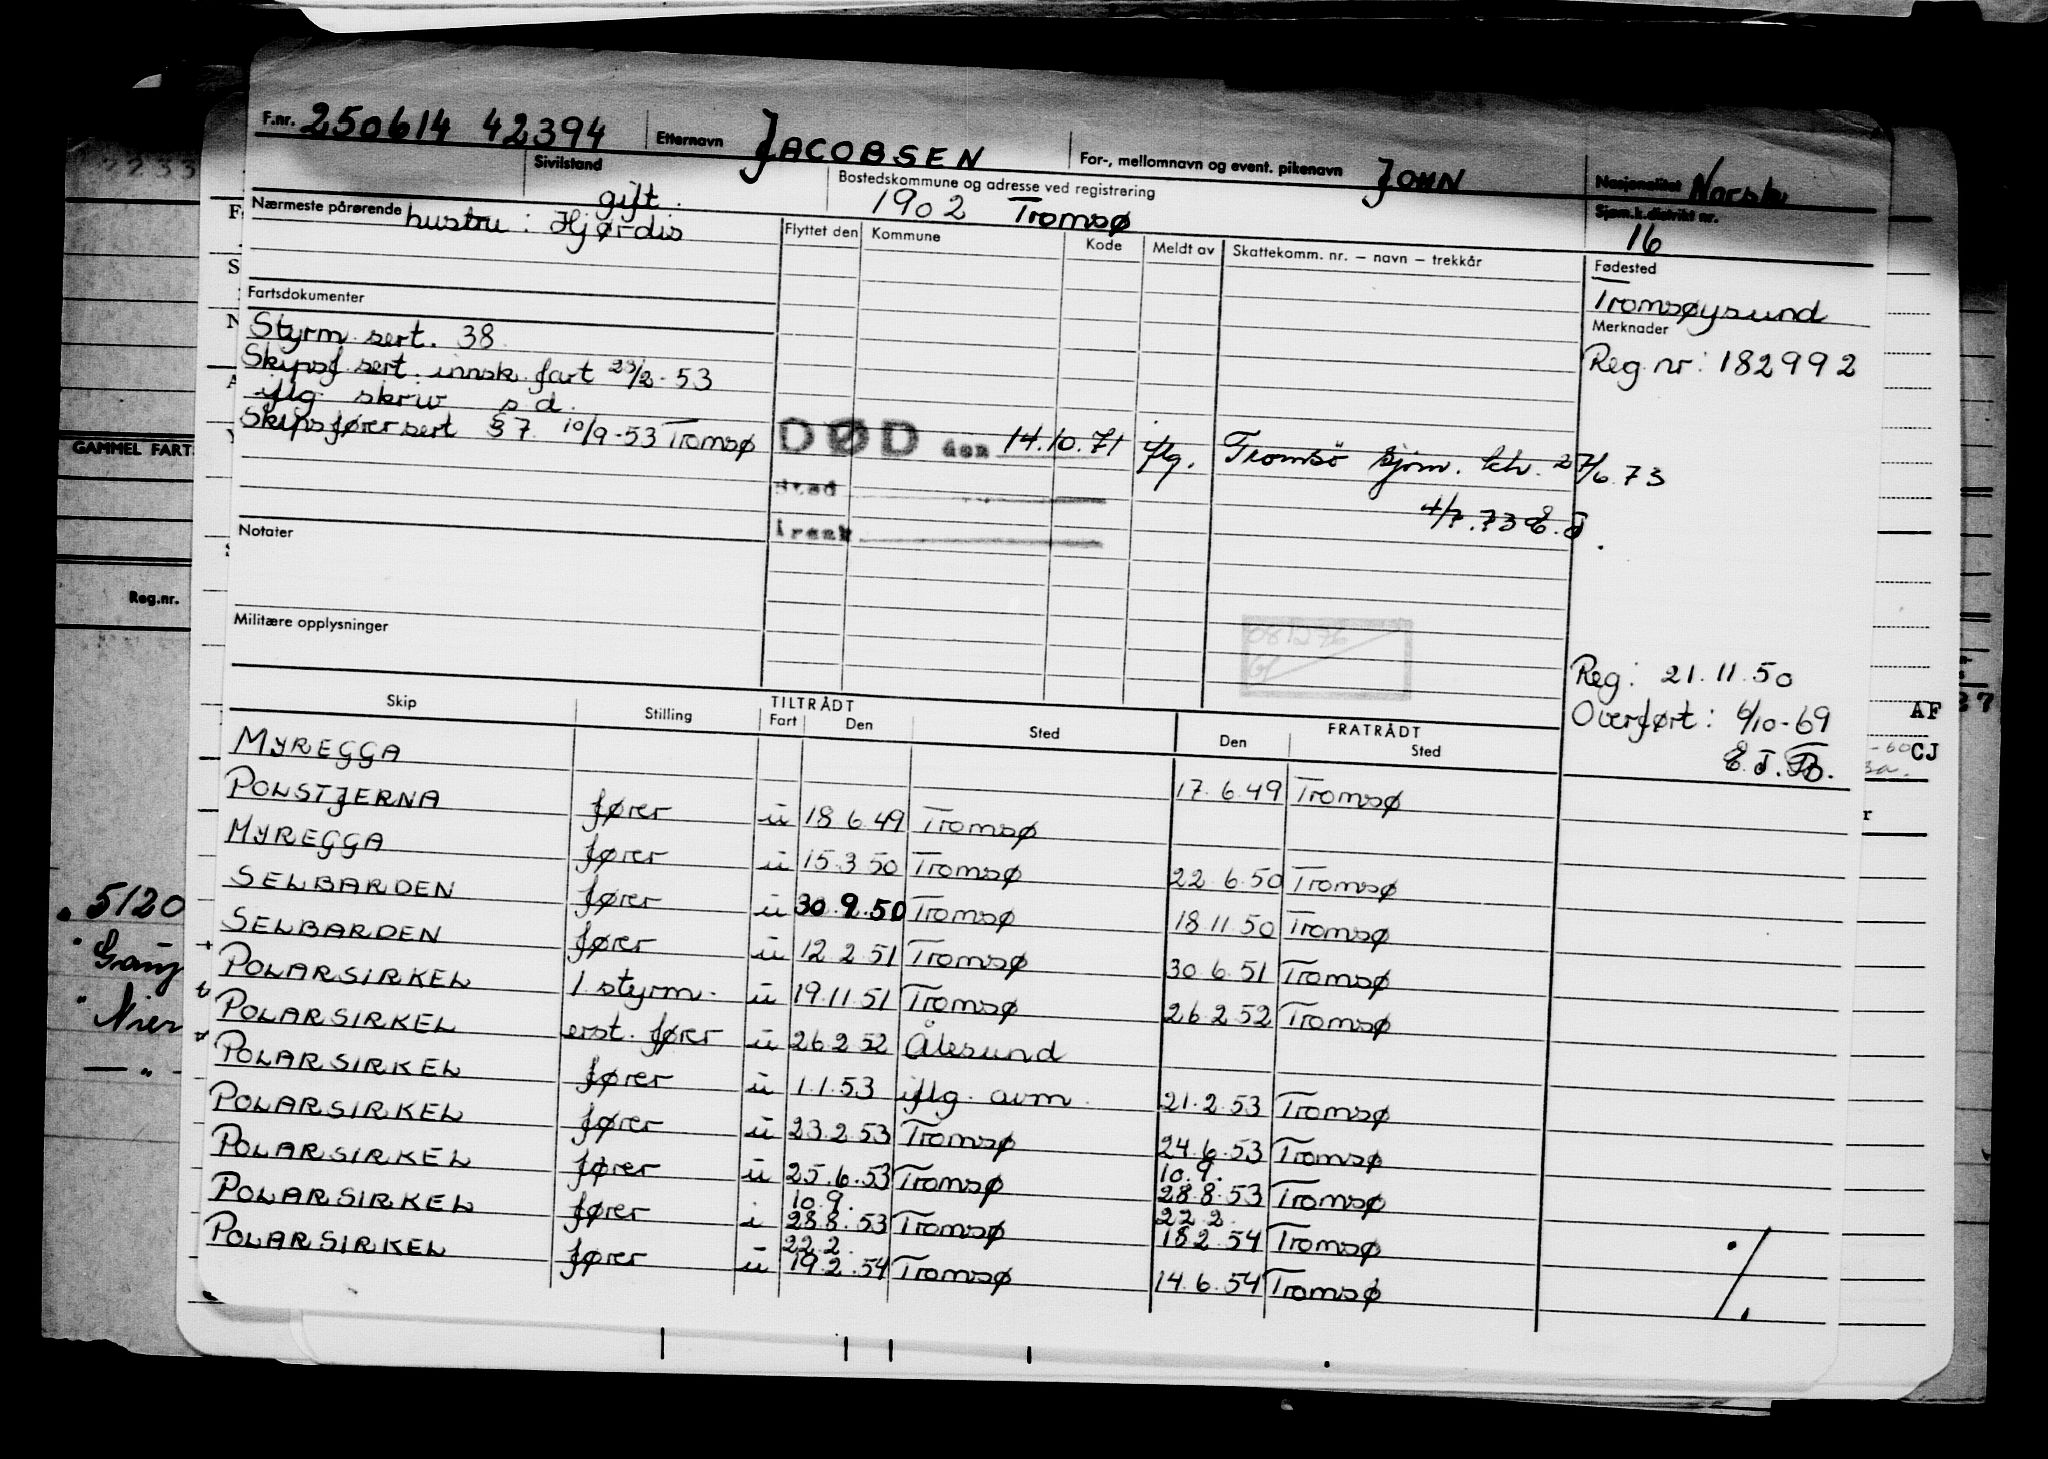 F.nr. 250614 42394 Etternavn JACOBSEN For-, mellomnavn og event. pikenavn JOHN Nasjonalitet Norsk
Sivilstand gift. Bostedskommune og adresse ved registrering 1902 Tromsø Sjøm.k.distrikt nr. 16
Nærmeste pårørende hustru: Hjørdis Flyttet den Kommune Kode Meldt av Skattekomm. nr. – navn – trekkår
Fødested
Tromsøysund
Fartsdokumenter
Merknader
Styrm. sert. 38
Reg. nr: 182992
Skipsf. sert. innsk. fart 23/2-53
iflg. skriv s.d.
Skipsfører sert § 7. 10/9-53 Tromsø
DØD den 14.10.71 iflg. Tromsö sjöm. ktr. 27/6 73
Sted
4/7.73 E.J.
i resk
GAMMEL FART
Notater
Reg.nr.
Militære opplysninger
Reg: 21.11.50
Overført: 6/10-69
Skip Stilling TILTRÅDT Fart Den Sted FRATRÅDT Den Sted
AF
CJ
MYREGGA 17.6.49 Tromsø
POLSTJERNA fører u 18.6.49 Tromsø
MYREGGA fører u 15.3.50 Tromsø 22.6.50 Tromsø
SELBARDEN fører u 30.9.50 Tromsø 18.11.50 Tromsø
SELBARDEN fører u 12.2.51 Tromsø 30.6.51 Tromsø
POLARSIRKEL 1 styrm. u 19.11.51 Tromsø 26.2.52 Tromsø
POLARSIRKEL erst. fører u 26.2.52 Ålesund
POLARSIRKEL fører u 1.1.53 iflg. avm. 21.2.53 Tromsø
POLARSIRKEL fører u 23.2.53 Tromsø 24.6.53 Tromsø
10.9.
POLARSIRKEL fører u 25.6.53 Tromsø 28.8.53 Tromsø
10.9. 22.2.
POLARSIRKEL fører i 28.8.53 Tromsø 18.2.54 Tromsø
22.2.
POLARSIRKEL fører u 19.2.54 Tromsø 14.6.54 Tromsø
5120